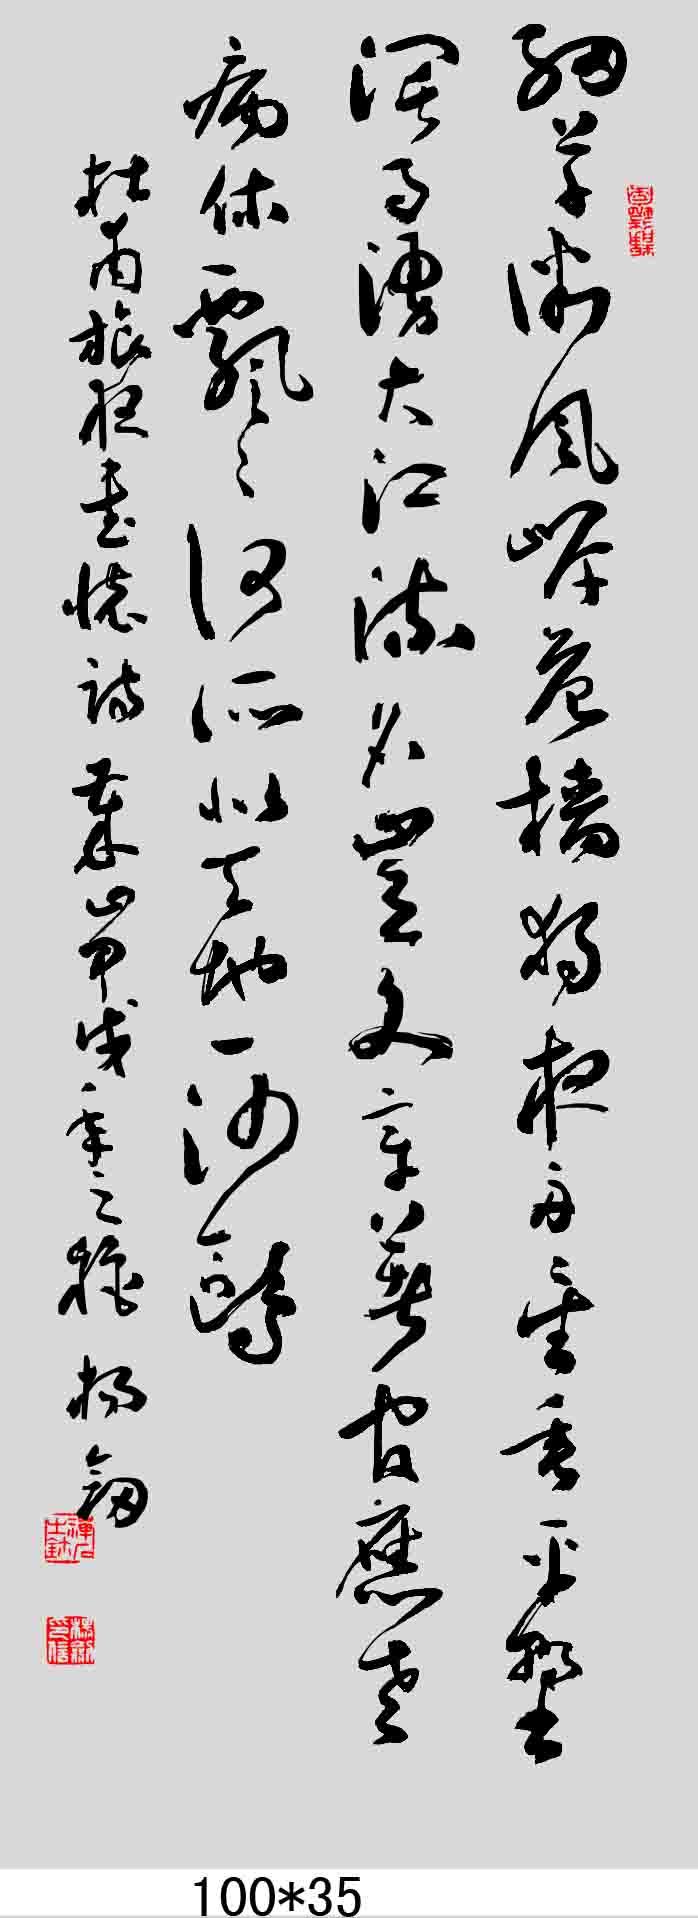 細草微風岸危檣獨夜舟星垂平野
闊月湧大江流名豈文章著官應老
病休飄々何所似天地一沙鷗
杜甫旅夜書懷詩 山甲戌年之穐 楊劍
楊劍印信
100*35